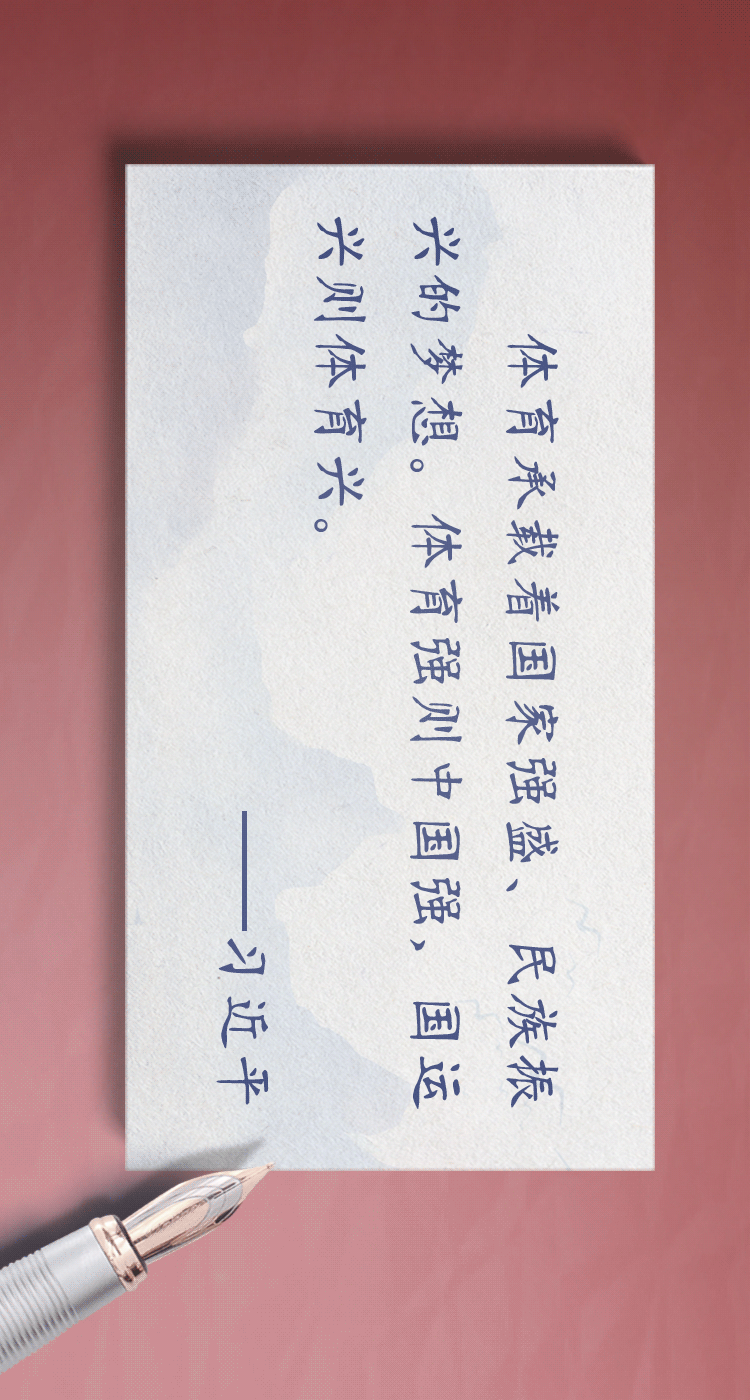 体育承载着国家强盛、民族振
兴的梦想。体育强则中国强、国运
兴则体育兴。
——习近平